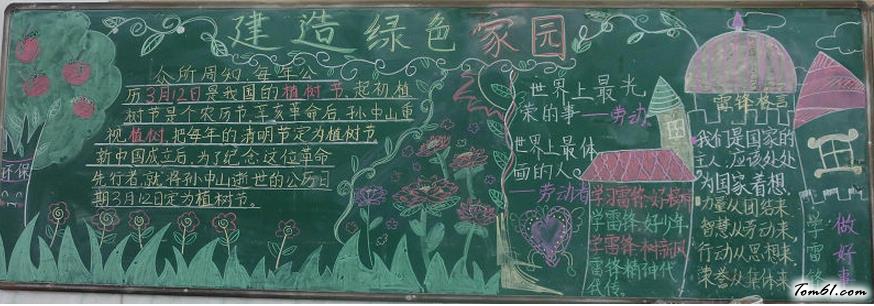 建造绿色家园
众所周知,每年公
历3月12日是我国的植树节,起初植
树节是个农历节,辛亥革命后,孙中山重
视植树,把每年的清明节定为植树节
新中国成立后,为了纪念这位革命
先行者,就将孙中山逝世的公历日
期3月12日定为植树节。
环保
世界上最光
荣的事——劳动
世界上最体
面的人
——劳动者
学习雷锋好榜样
学雷锋好少年
学雷锋树新风
雷锋精神代
代传
雷锋格言
我们是国家的
主人,应该处处
为国家着想
力量从团结来
智慧从劳动来,
行动从思想来
荣誉从集体来
学雷锋
做好事
Tom61.com